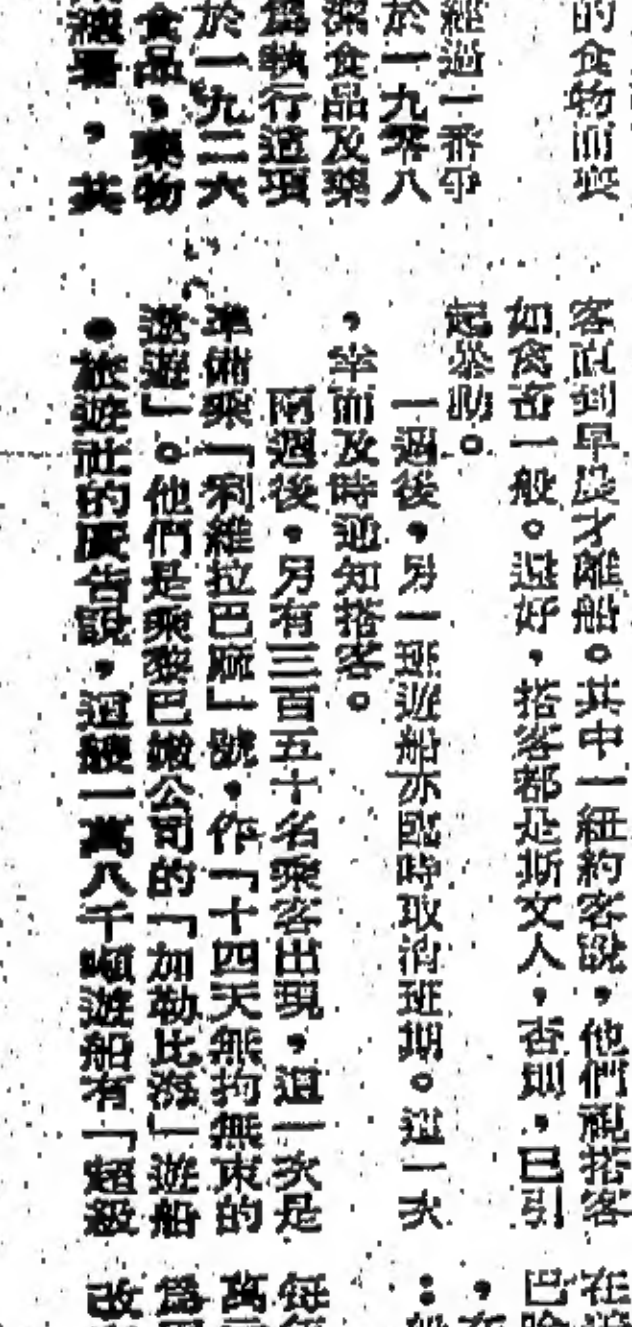 的食物而喪
經過一番爭
於一九零八
深食品及藥
爲執行這項
於一九二六
食品,藥物
總署,其
客直到早晨才離船。其中一紐約客說,他們視搭客
如貪畜一般。還好,搭客都是斯文人,否則,已引
起暴動。
一週後,另一班遊船亦臨時取消班期。這一次
,幸而及時通知搭客。
兩週後,另有三百五十名乘客出現,這一次是
準備乘「利維拉巴麻」號,作「十四天無拘無束的
遨遊」。他們是乘黎巴嫩公司的「加勒比海」遊船
●旅遊社的廣告說,這艘一萬八千噸遊船有「超級
在
巴
每
萬
爲
改